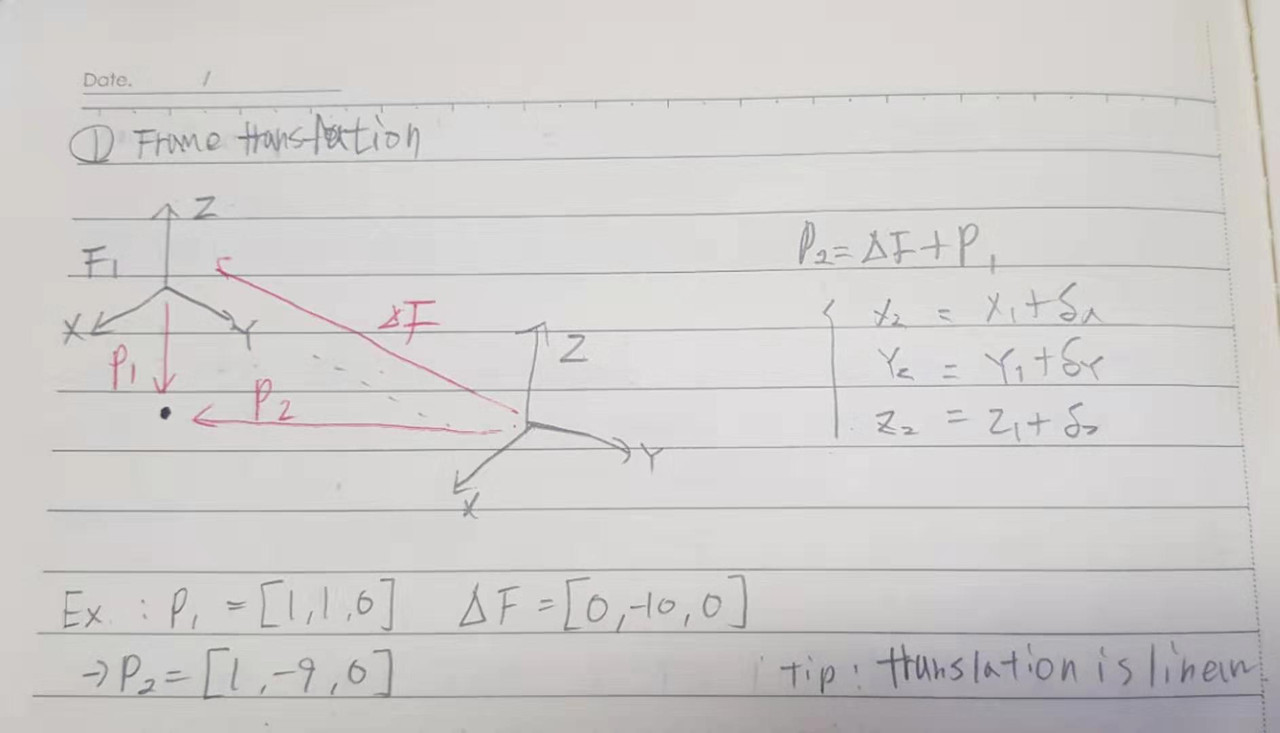 Date. /
① Frame translation
Z
F₁
X
Y
ΔF
P₁
P₂
Z
Y
X
P₂ = ΔF + P₁
X₂ = X₁ + δx
Y₂ = Y₁ + δY
Z₂ = Z₁ + δz
Ex. : P₁ = [1, 1, 0] ΔF = [0, -10, 0]
→ P₂ = [1, -9, 0]
Tip : translation is linear